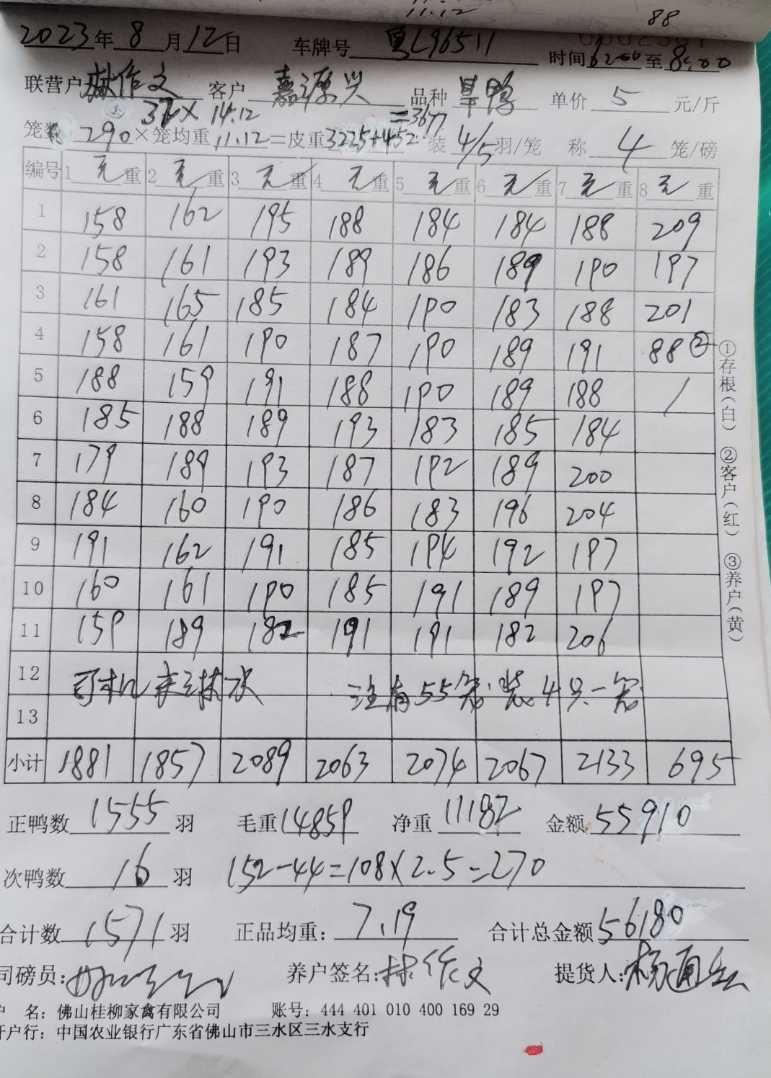 11.12
88
2023年8月12日 车牌号 粤L96511 时间 6:00至8:00
联营户 林作文 客户 嘉源兴 品种 旱鸭 单价 5 元/斤
32×14.12 =3677
笼数 290×笼均重 11.12=皮重3225+452 装 4/5羽/笼 称 4 笼/磅
编号 1毛重 2毛重 3毛重 4毛重 5毛重 6毛重 7毛重 8毛重
1 158 162 195 188 184 184 188 209
2 158 161 193 189 186 189 190 197
3 161 165 185 184 190 183 188 201
4 158 161 190 187 190 189 191 88②
5 188 159 191 188 190 189 188 /
6 185 188 189 193 183 185 184
7 179 189 193 187 192 189 200
8 184 160 190 186 183 196 204
9 191 162 191 185 194 192 197
10 160 161 190 185 191 189 197
11 159 189 182 191 191 182 206
12 司机 注有55笼装4只一笼
13
小计 1881 1857 2089 2063 2074 2067 2133 695
①存根(白) ②客户(红) ③养户(黄)
正鸭数 1555 羽 毛重 14859 净重 11182 金额 55910
次鸭数 16 羽 152-44=108×2.5=270
合计数 1571 羽 正品均重: 7.19 合计总金额 56180
司磅员: 养户签名: 林作文 提货人: 杨通
户 名: 佛山桂柳家禽有限公司 账号: 444 401 010 400 169 29
开户行: 中国农业银行广东省佛山市三水区三水支行